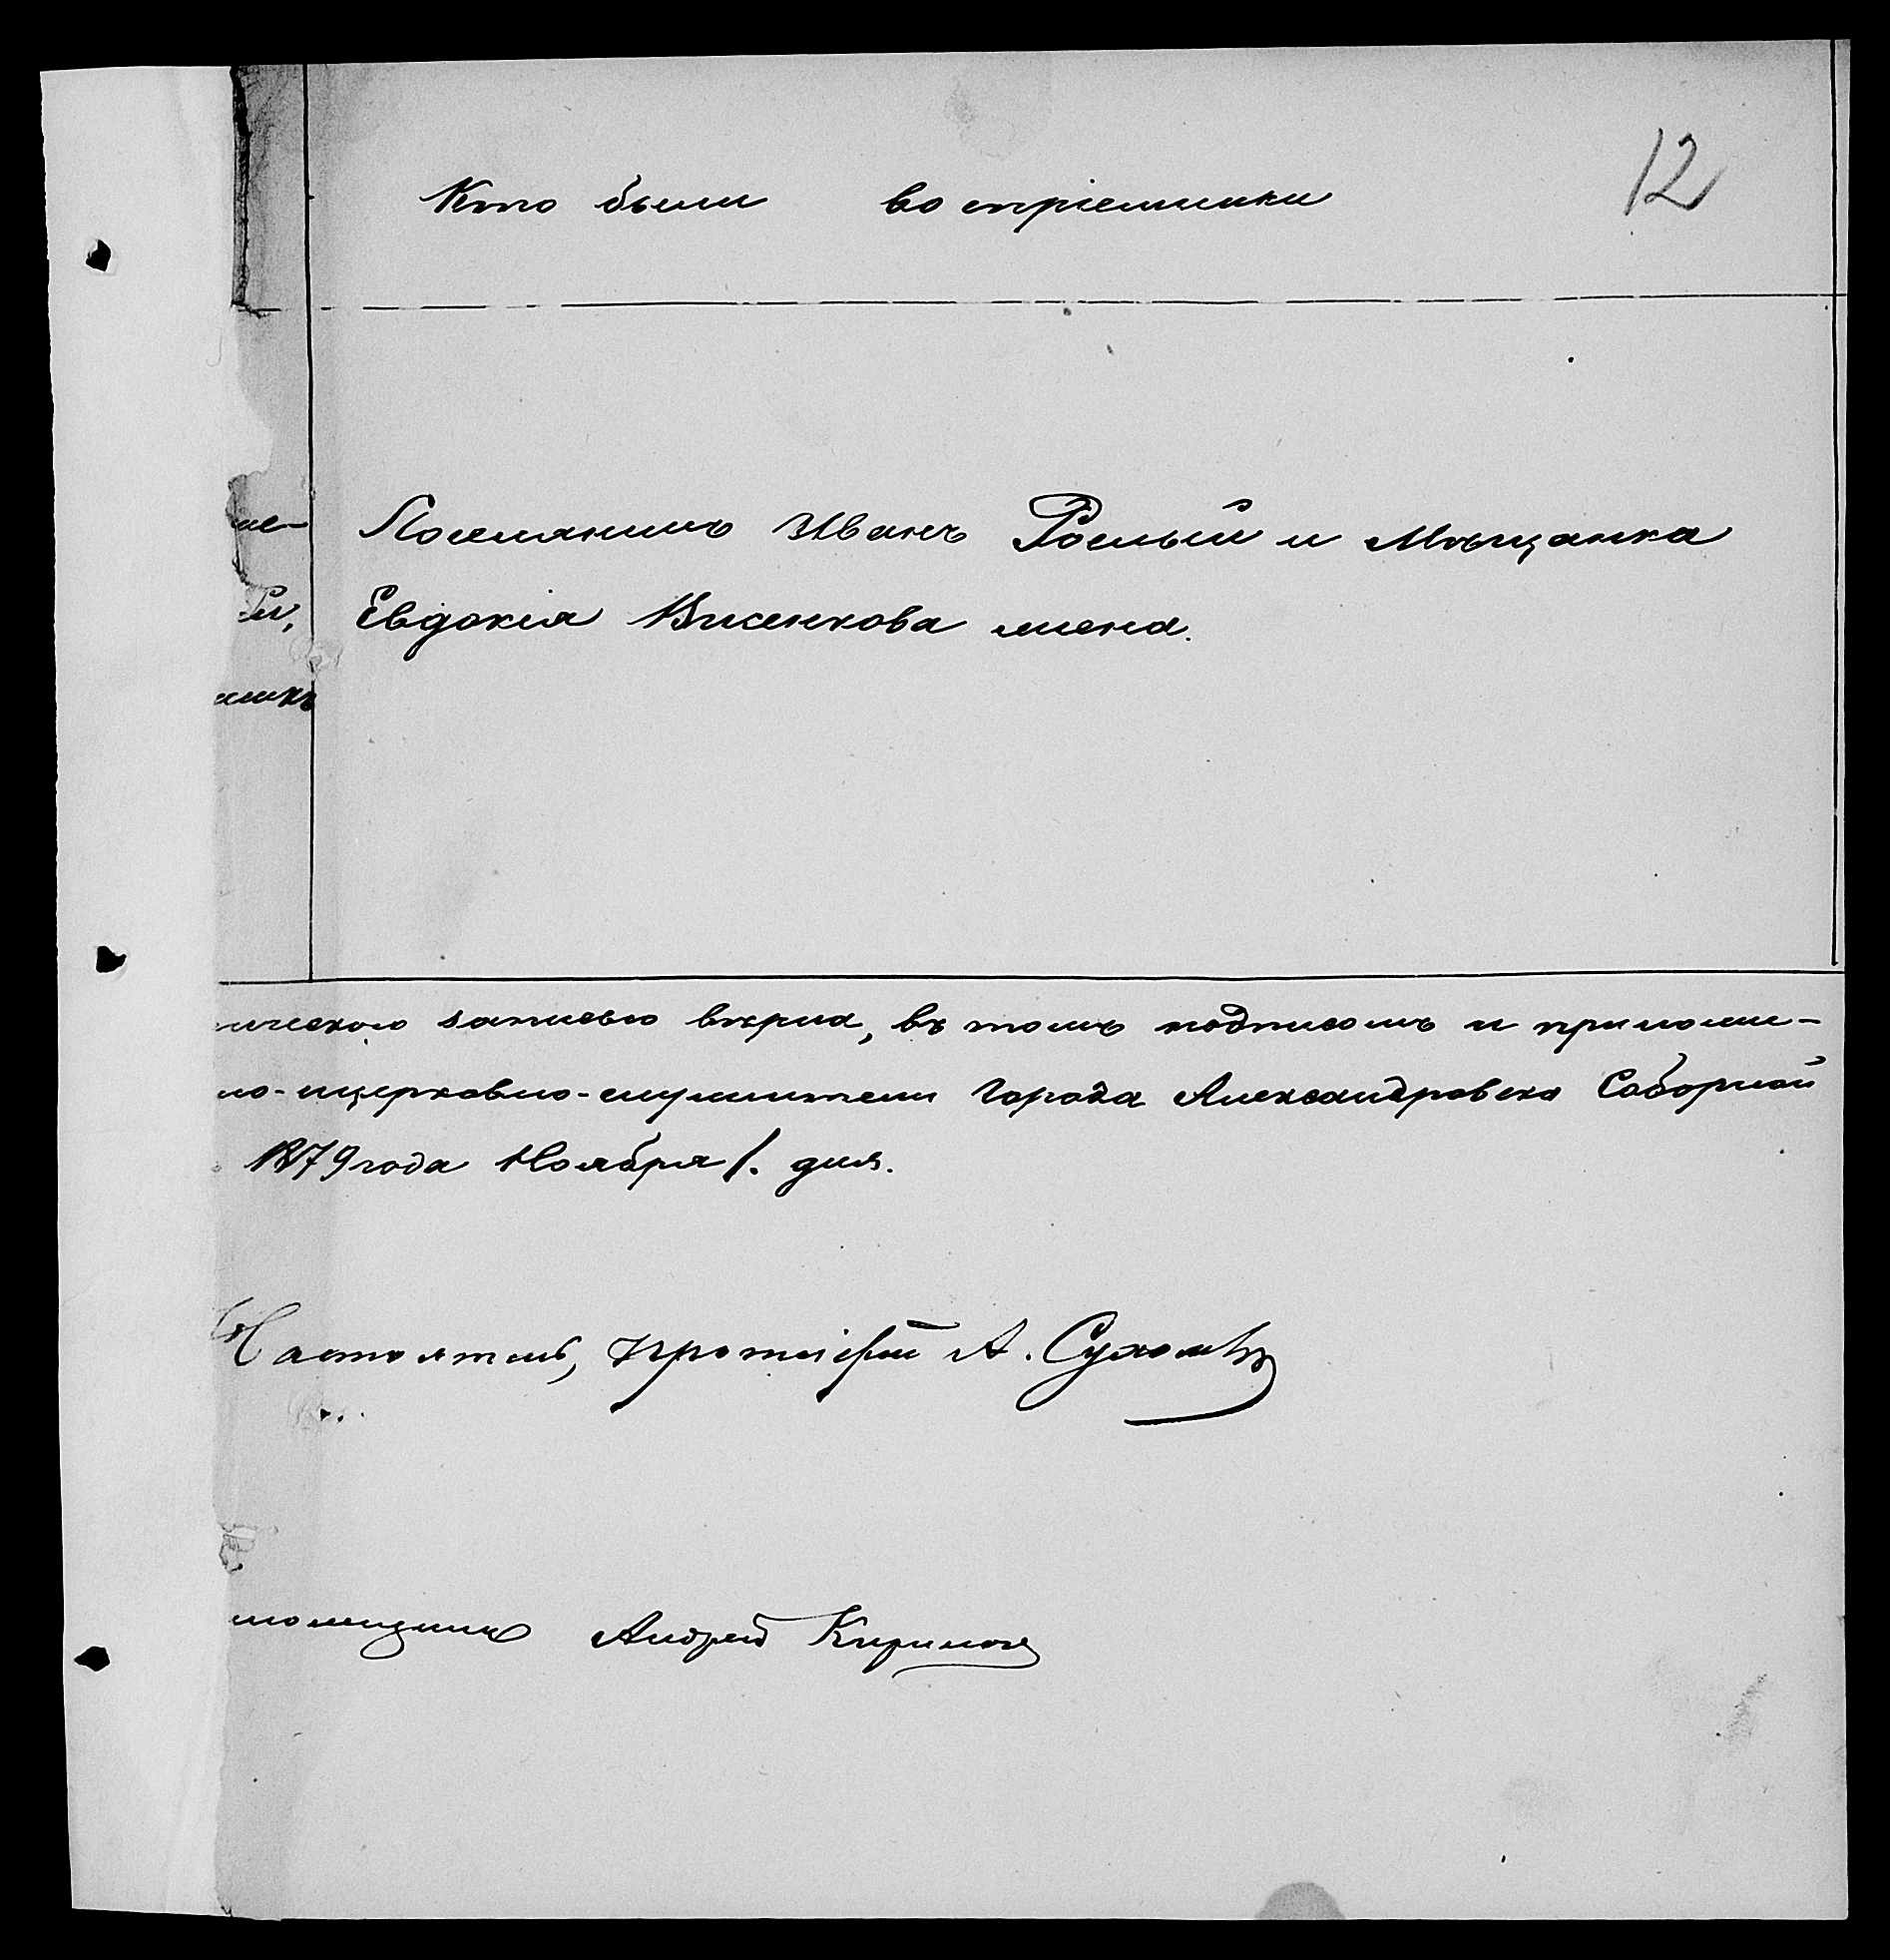 12
Кто были воспріемники
Поселянинъ Иванъ Рослый и Мѣщанка
Евдокія жена.
записью вѣрна, въ томъ подписомъ и приложе-
но-церковно-служители города Александровска Соборной
1879 года Ноября 1. дня.
Настоятель, протоіерей А.
Андрей Кирилов